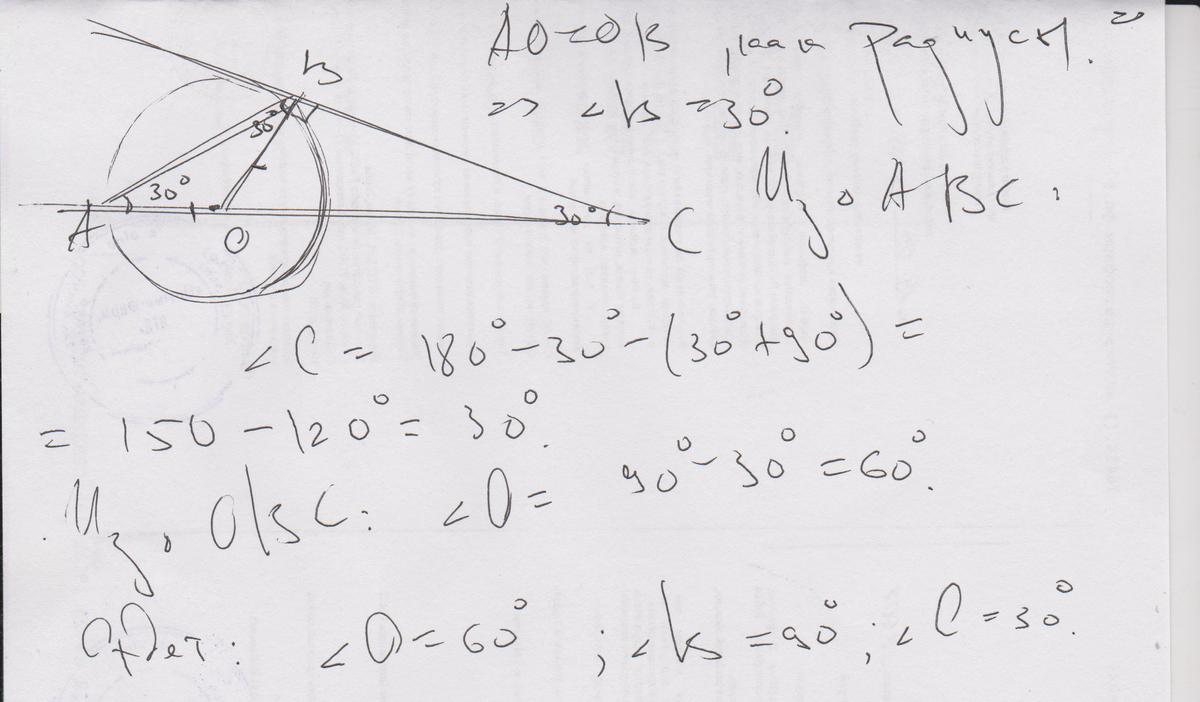 AO=OB, как радиусы. =>
=> ∠B = 30°.
Из ABC:
B
30°
30°
A
O
30°
C
∠C = 180° - 30° - (30° + 90°) =
= 150 - 120° = 30°.
Из OBC: ∠O = 90° - 30° = 60°.
Ответ: ∠O = 60° ; ∠B = 90° ; ∠C = 30°.